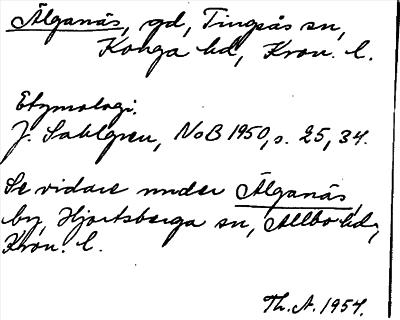 Älganäs, gd, Tingsås sn,
Konga hd, Kron. l.
Etymologi.
J. Sahlgren, NoB 1950, s. 25, 34.
Se vidare under Älganäs,
by, Hjortsberga sn, Allbo hd,
Kron. l.
Th. A. 1954.